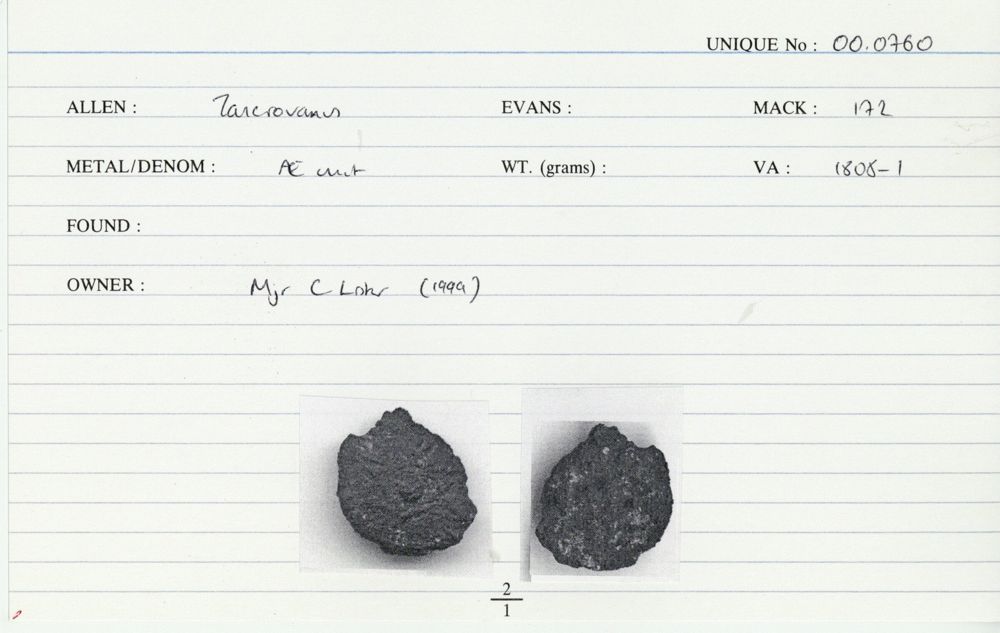 UNIQUE No : 00.0760
ALLEN : Tasciovanus EVANS : MACK : 172
METAL/DENOM : Æ unit WT. (grams) : VA : 1808-1
FOUND :
OWNER : Mjr C (1999)
2
1